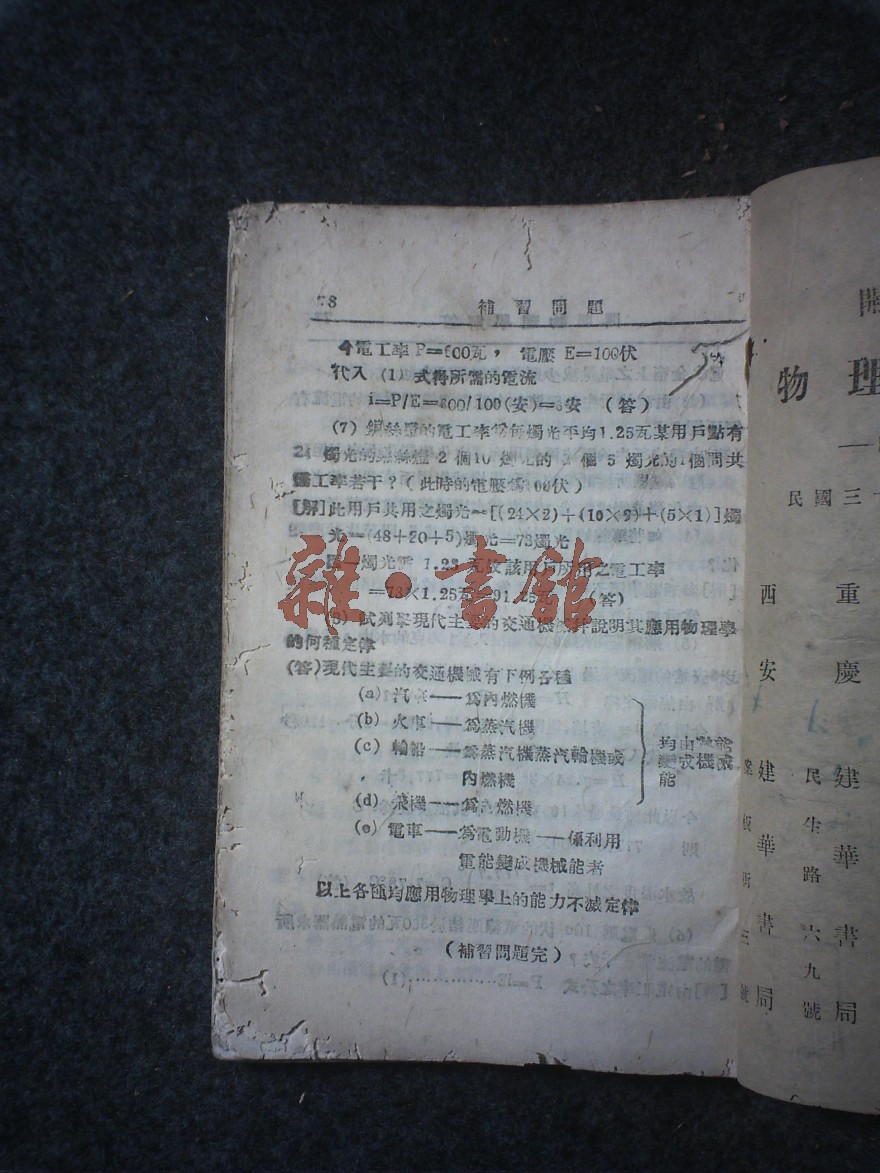 78 補習問題
今電工率 P=600瓦， 電壓 E=100伏
代入 (1) 式得所需的電流
i=P/E=600/100(安)=6安 (答)
(7) 鎢絲燈的電工率為每燭光平均1.25瓦某用戶點有
24 燭光的鎢絲燈 2 個10 燭光的 2 個 5 燭光的1個問共
需工率若干？(此時的電壓為100伏)
[解]此用戶共用之燭光=[(24×2)+(10×2)+(5×1)]燭
光=(48+20+5)燭光=73燭光
因一燭光需 1.25 瓦故該用戶所用之電工率
=73×1.25瓦=91.25瓦 (答)
(8) 試列舉現代主要的交通機械并說明其應用物理學
的何種定律
(答)現代主要的交通機械有下例各種
(a) 汽車——為內燃機
(b) 火車——為蒸汽機
(c) 輪船——為蒸汽機蒸汽輪機或
內燃機
(d) 飛機——為內燃機
均由熱能
變成機械
能
(e) 電車——為電動機——係利用
電能變成機械能者
以上各種均應用物理學上的能力不滅定律
(補習問題完)
雜·書館
開
物理
民國三十
重慶 建華書局
民生路六九號
西安 建華書局